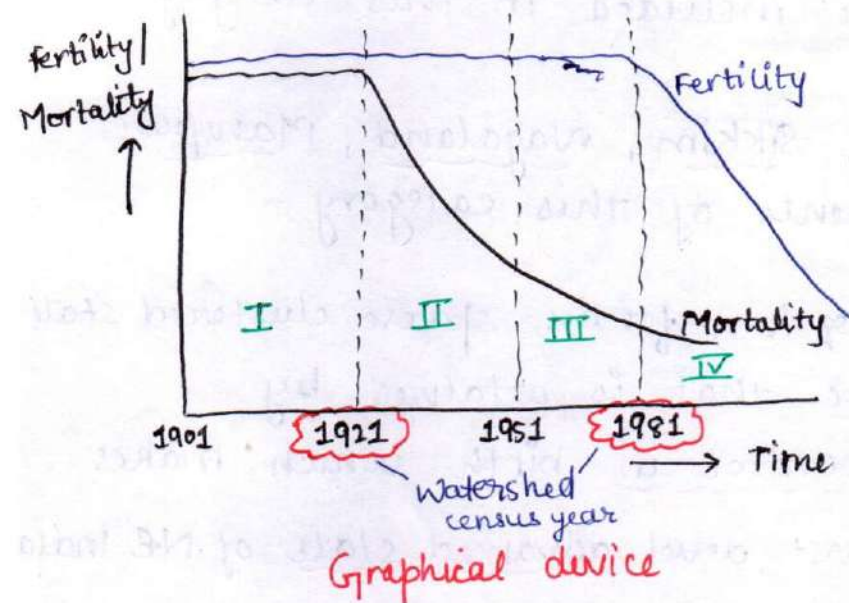 Fertility/
Mortality
Fertility
Mortality
I
II
III
IV
1901
1921
1951
1981
Time
Watershed
census year
Graphical device